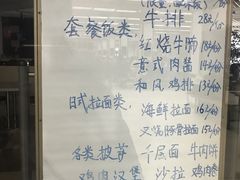 牛排 28元/份
套餐饭类:
红烧牛腩 18元/份
意式肉酱 14元/份
和风鸡排 13元/份
日式拉面类:
海鲜拉面 16元/份
叉烧豚骨拉面 15元/份
各类披萨 千层面 牛肉饼
鸡肉汉堡 沙拉 鸡肉卷